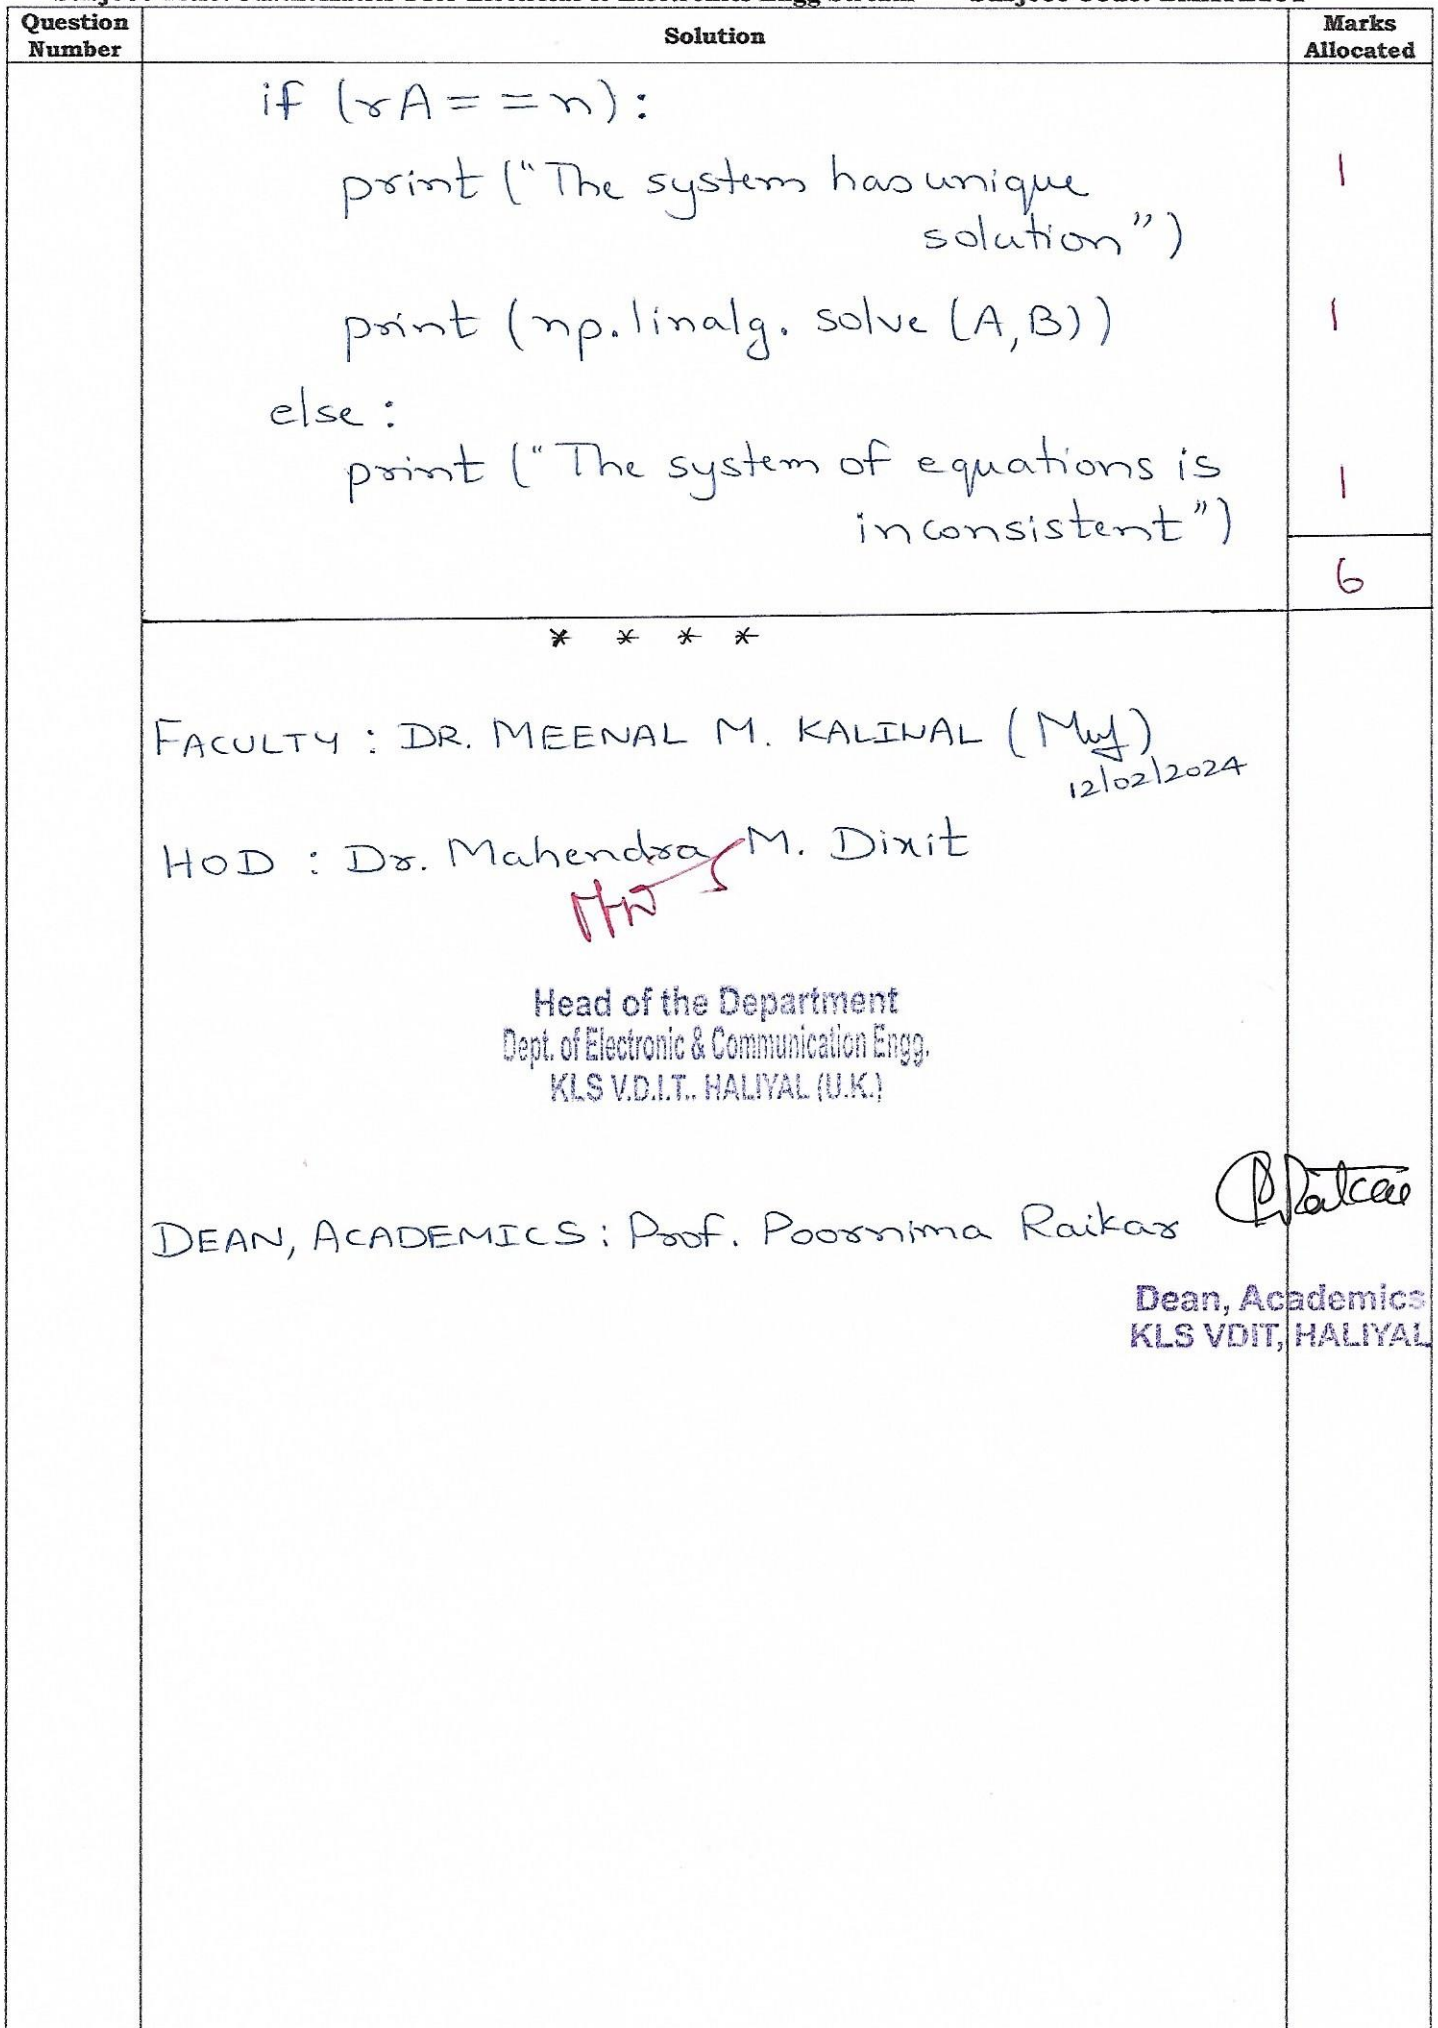 Question Number
Solution
Marks Allocated
if (rA = = n):
print ("The system has unique
solution")
1
print (np.linalg. solve (A,B))
1
else :
print ("The system of equations is
inconsistent")
1
6
* * * *
FACULTY : DR. MEENAL M. KALINAL
12/02/2024
HOD : Dr. Mahendra M. Dixit
Head of the Department
Dept. of Electronic & Communication Engg.
KLS V.D.I.T., HALIYAL (U.K.)
DEAN, ACADEMICS : Prof. Poornima Raikar
Dean, Academics
KLS VDIT, HALIYAL